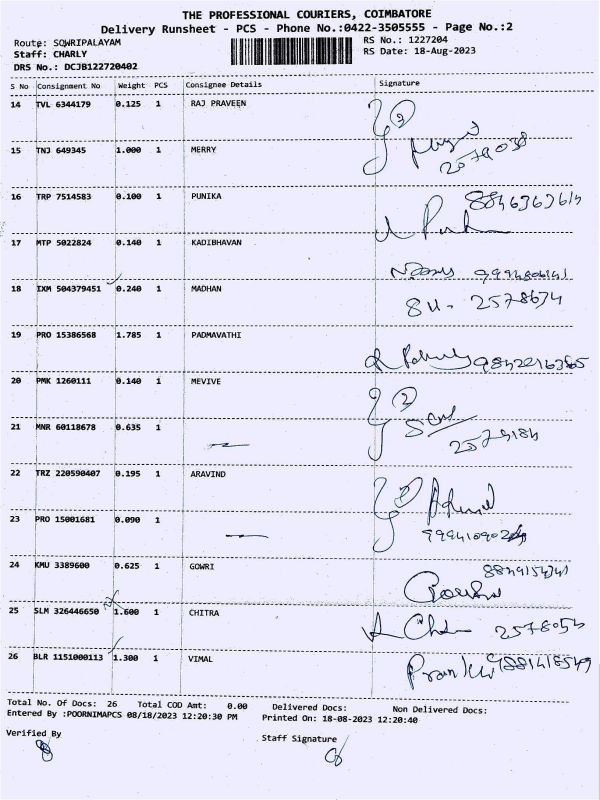 THE PROFESSIONAL COURIERS, COIMBATORE
Delivery Runsheet - PCS - Phone No.:0422-3505555 - Page No.:2
Route: SOWRIPALAYAM RS No.: 1227204
Staff: CHARLY RS Date: 18-Aug-2023
DRS No.: DCJB122720402
S No Consignment No Weight PCS Consignee Details Signature
14 TVL 6344179 0.125 1 RAJ PRAVEEN
15 TNJ 649345 1.000 1 MERRY
16 TRP 7514583 0.100 1 PUNIKA
17 MTP 5022824 0.140 1 KADIBHAVAN
18 IXM 504379451 0.240 1 MADHAN
2578674
19 PRO 15386568 1.785 1 PADMAVATHI
20 PMK 1260111 0.140 1 MEVIVE
21 MNR 60118678 0.635 1
22 TRZ 220590407 0.195 1 ARAVIND
23 PRO 15001681 0.090 1
24 KMU 3389600 0.625 1 GOWRI
25 SLM 326446650 1.600 1 CHITRA
26 BLR 1151000113 1.300 1 VIMAL
Total No. Of Docs: 26 Total COD Amt: 0.00 Delivered Docs: Non Delivered Docs:
Entered By :POORNIMAPCS 08/18/2023 12:20:30 PM Printed On: 18-08-2023 12:20:40
Verified By Staff Signature